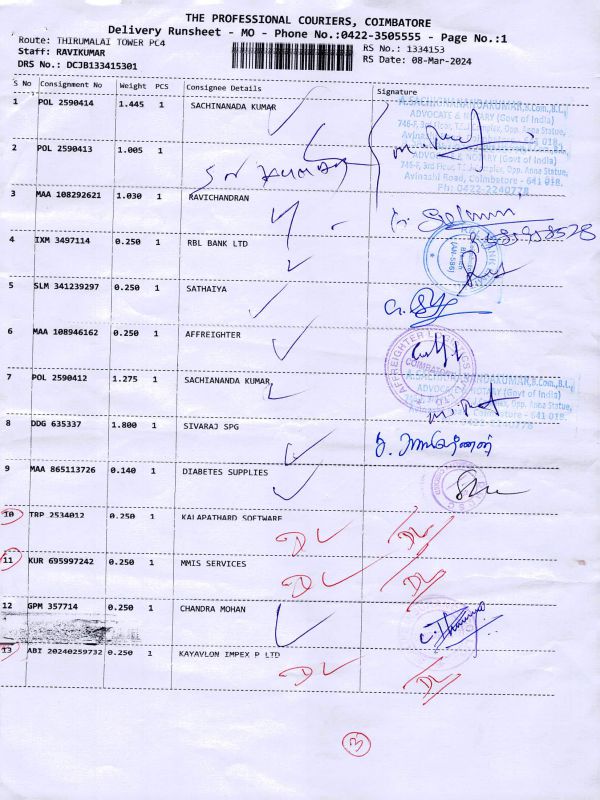 THE PROFESSIONAL COURIERS, COIMBATORE
Delivery Runsheet - MO - Phone No.:0422-3505555 - Page No.:1
Route: THIRUMALAI TOWER PC4
RS No.: 1334153
Staff: RAVIKUMAR
RS Date: 08-Mar-2024
DRS No.: DCJB133415301
S No Consignment No Weight PCS Consignee Details Signature
1 POL 2590414 1.445 1 SACHINANADA KUMAR
ADVOCATE & NOTARY (Govt of India)
2 POL 2590413 1.005 1
ADVOCATE & NOTARY (Govt of India)
746-F, 3rd Floor, T Complex, Opp. Anna Statue,
Avinashi Road, Coimbatore - 641 018.
Ph: 0422-2240778
3 MAA 108292621 1.030 1 RAVICHANDRAN
4 IXM 3497114 0.250 1 RBL BANK LTD
5 SLM 341239297 0.250 1 SATHAIYA
6 MAA 108946162 0.250 1 AFFREIGHTER
COIMBATORE
7 POL 2590412 1.275 1 SACHIANANDA KUMAR
8 DDG 635337 1.800 1 SIVARAJ SPG
9 MAA 865113726 0.140 1 DIABETES SUPPLIES
10 TRP 2534012 0.250 1 KALAPATHARD SOFTWARE
DL DL
11 KUR 695997242 0.250 1 MMIS SERVICES
DL DL
12 GPM 357714 0.250 1 CHANDRA MOHAN
13 ABI 20240259732 0.250 1 KAYAVLON IMPEX P LTD
DL DL